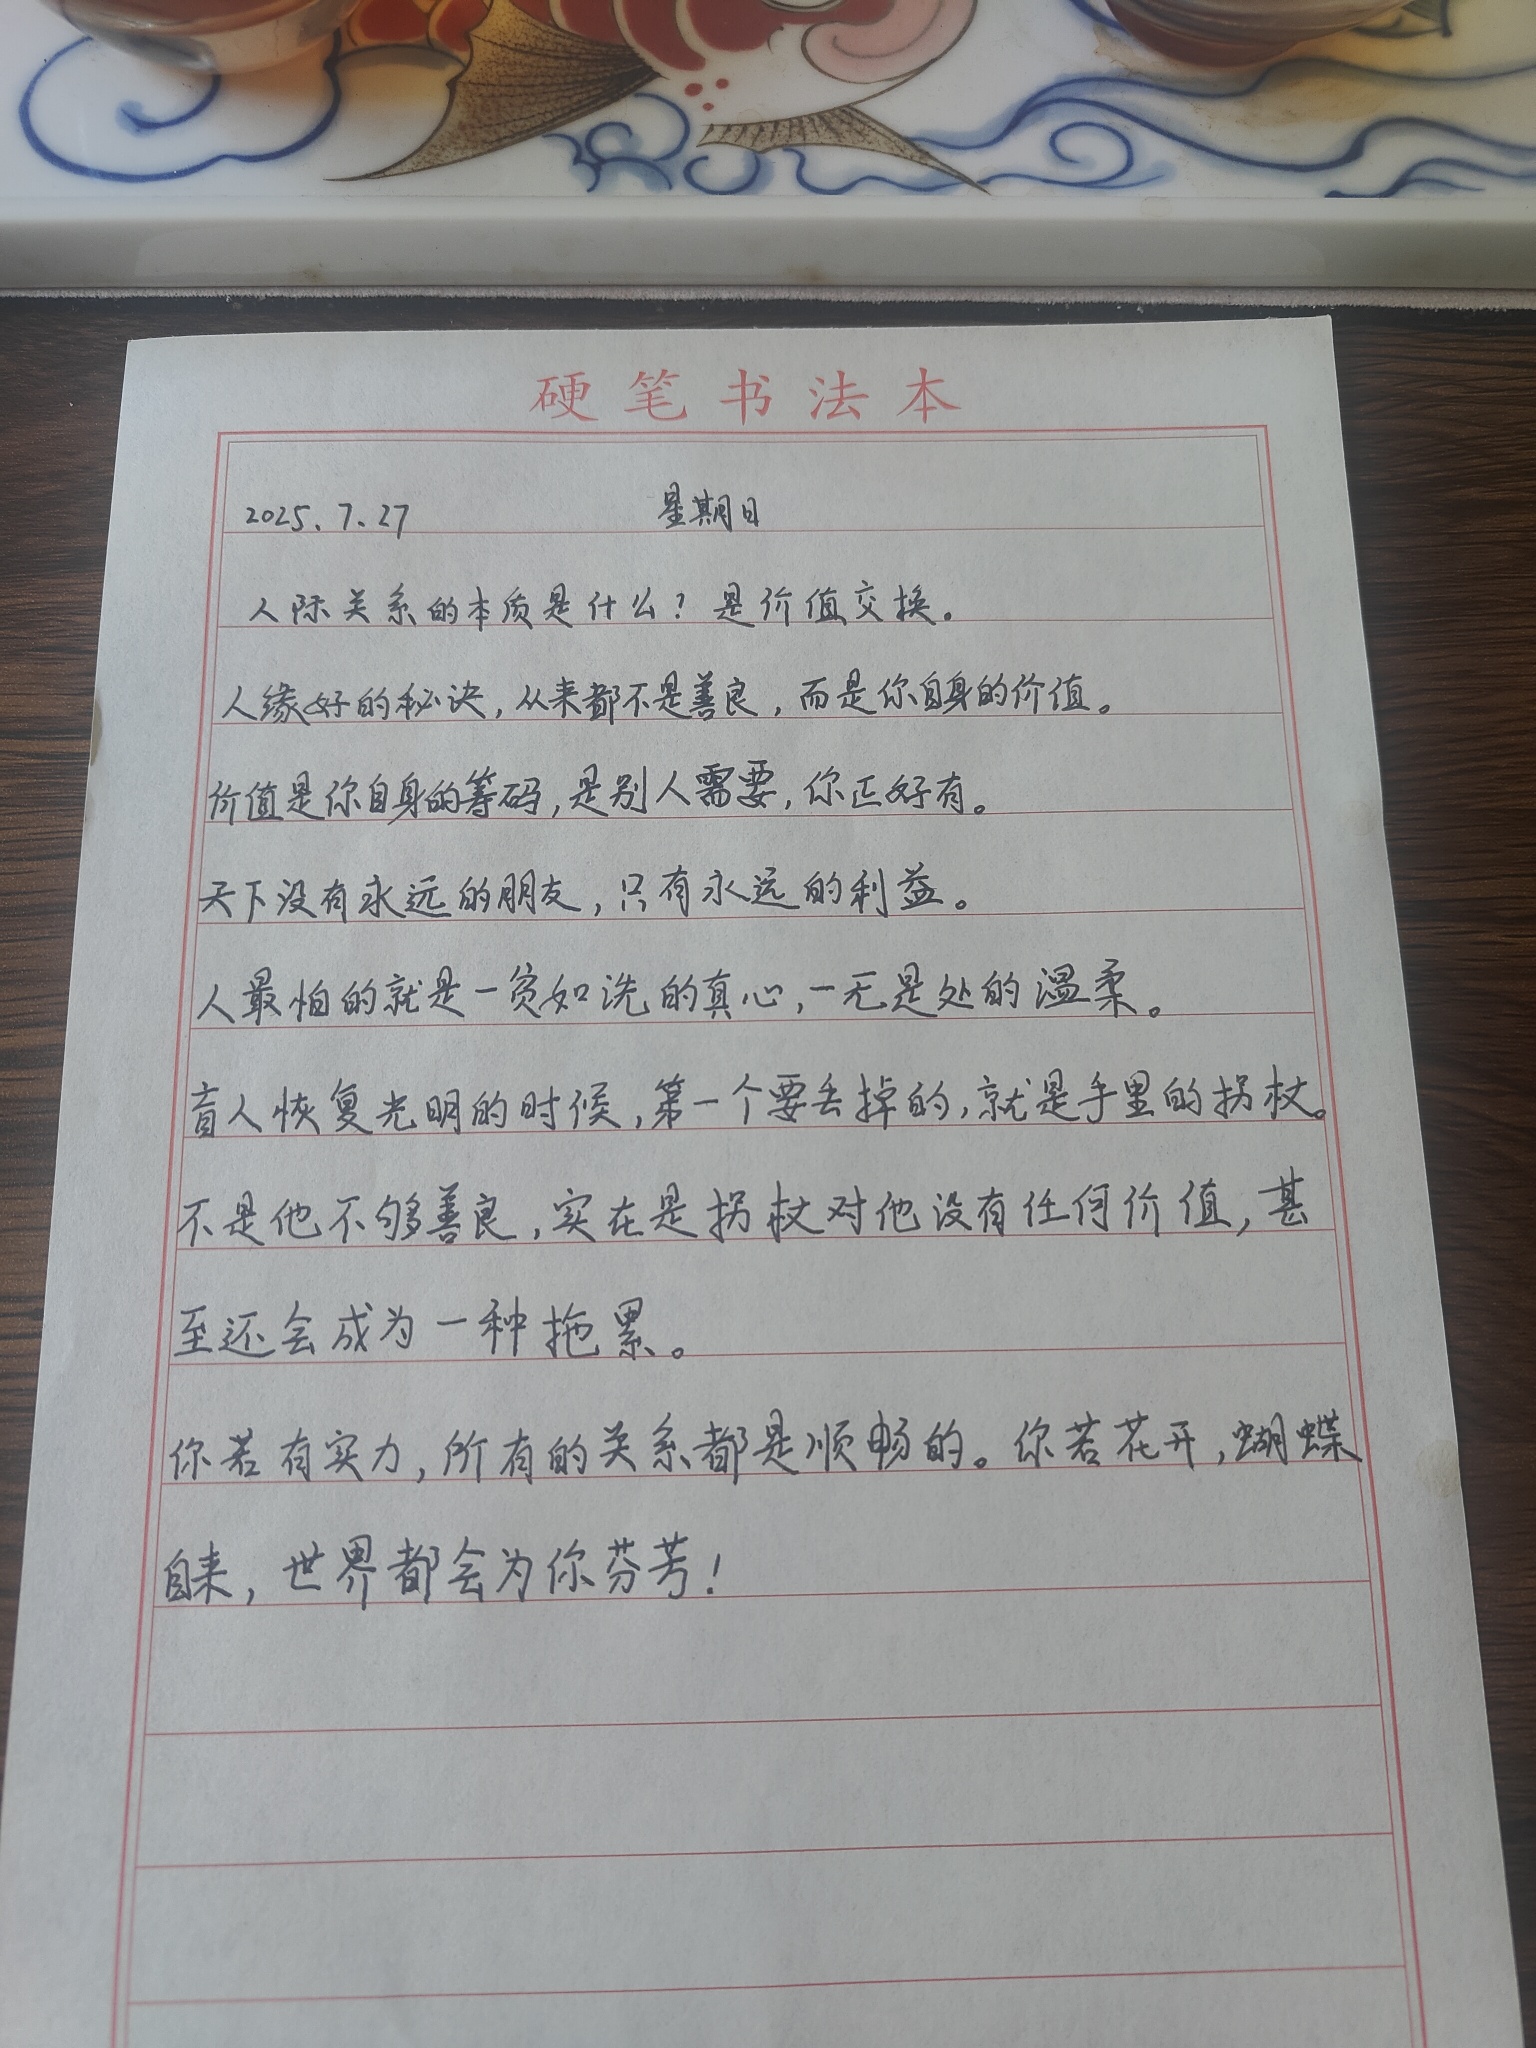 硬笔书法本
2025.7.27 星期日
人际关系的本质是什么?是价值交换。
人缘好的秘诀,从来都不是善良,而是你自身的价值。
价值是你自身的筹码,是别人需要,你正好有。
天下没有永远的朋友,只有永远的利益。
人最怕的就是一贫如洗的真心,一无是处的温柔。
盲人恢复光明的时候,第一个要丢掉的,就是手里的拐杖。
不是他不够善良,实在是拐杖对他没有任何价值,甚
至还会成为一种拖累。
你若有实力,所有的关系都是顺畅的。你若花开,蝴蝶
自来,世界都会为你芬芳!